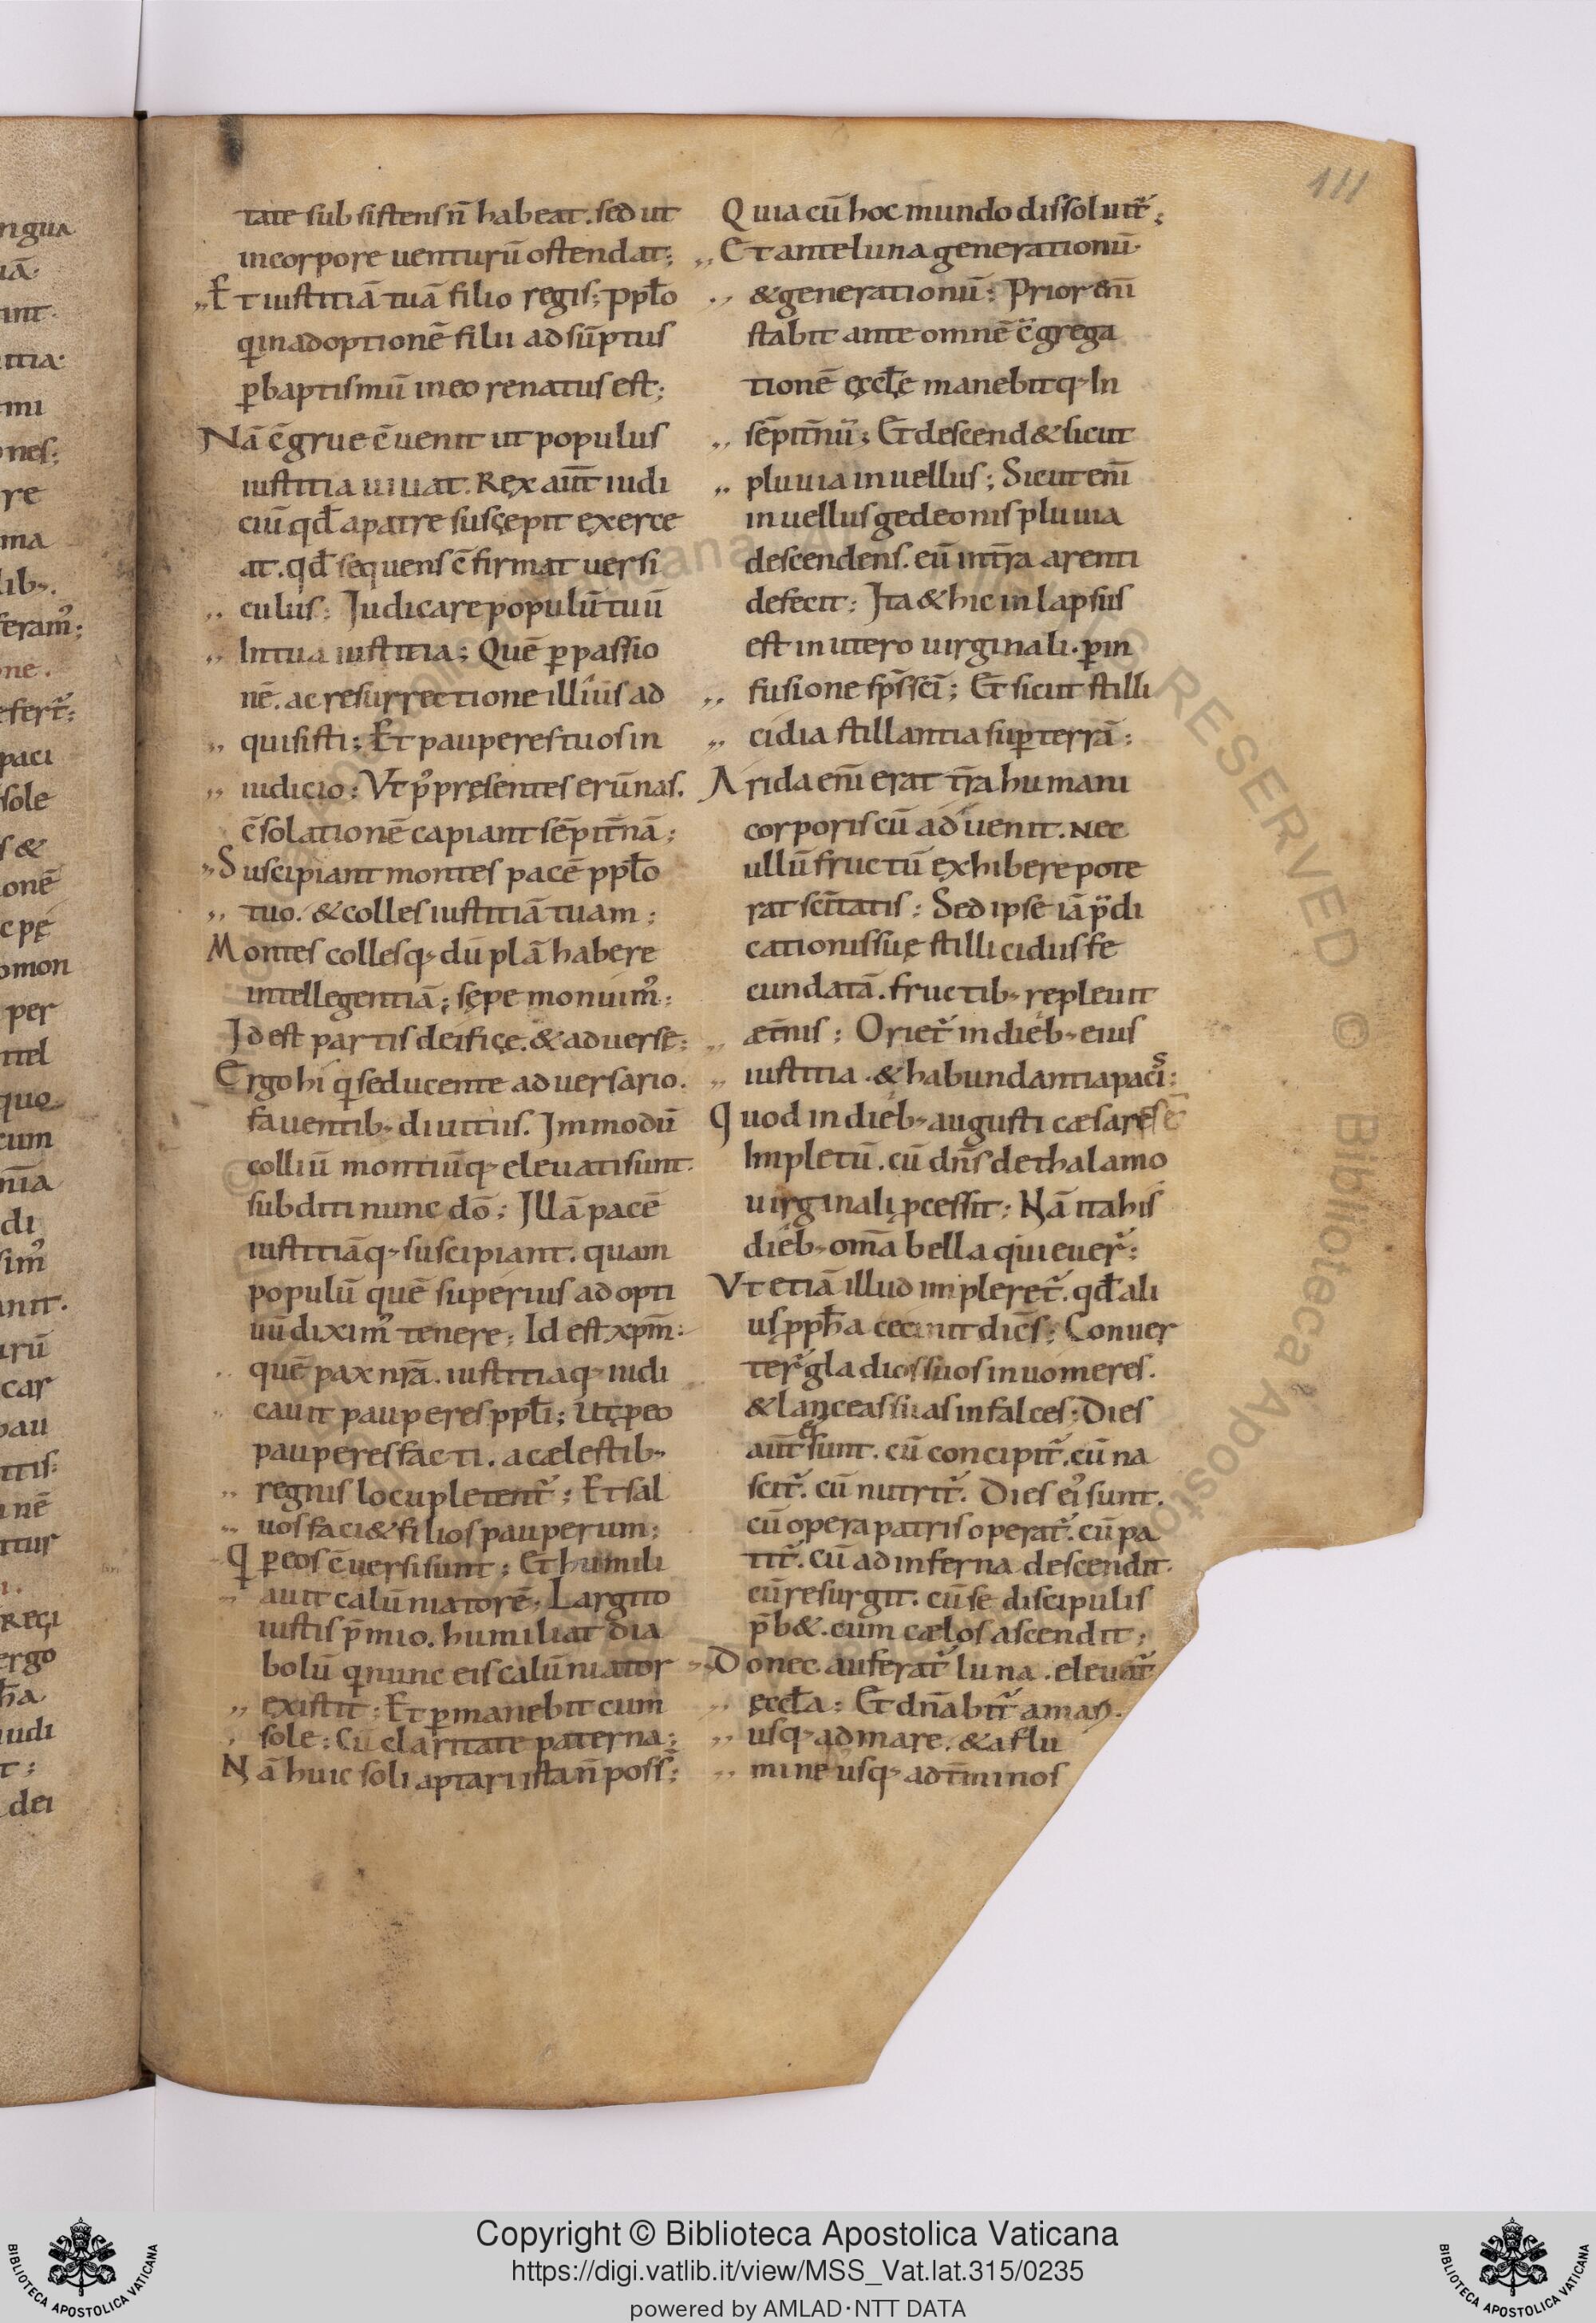 111
tate subsistens n̄ habeat. sed ut
in corpore uenturū ostendat;
Et iustitiā tuā filio regis; ppło
qui in adoptionē filii adsūptus
ꝑ baptismū in eo renatus est;
Nā c̄grue c̄uenit ut populus
iustitia uiuat. Rex aut̄ iudi
ciū qđ a patre suscępit exerce
at. qđ sequens c̄firmat uersi
culus; Iudicare populū tuū
In tua iustitia; Quē ꝑ passio
nē. ac resurrectione illius ad
quisisti; Et pauperes tuos in
iudicio; Vt p᷒ pręsentes erūnas.
c̄solationē capiant sēpit̄nā;
Suscipiant montes pacē ppło
tuo. & colles iustitiā tuam;
Montes collesq; duplā habere
intellegentiā; sępe monuim᷒;
Id est partis deificę. & aduersę;
Ergo hi q seducente aduersario.
fauentib; diuitiis. In modū
colliū montiūq; eleuati sunt.
subditi nunc dō; Illā pacē
iustitiāq; suscipiant. quam
populū quē superius adopti
uū dixim᷒ tenere; Id est xp̄m;
quē pax nr̄ā. iustitiaq; iudi
cauit pauperes ppłi; Ut ꝓ eo
pauperes facti. a cælestib;
regnis locupletent᷑; Et sal
uos faci& filios pauperum;
Q ꝑ eos c̄uersi sunt; Et humili
auit calūniatorē; Largito
iustis p̄mio. humiliat dia
bolū q nunc eis calūniator
existit; Et ꝑmanebit cum
sole; Cū claritate paterna;
Nā huic soli aptari ista n̄ poss̄;
Quia cū hoc mundo dissoluit᷑;
Et ante luna generationū
& generationū; Prior enī
stabit ante omnē c̄grega
tionē ęccłę manebitq; In
sēpit̄nū; Et descend& sicut
pluuia in uellus; Sicut enī
in uellus gedeonis pluuia
descendens. eū int̄ra arenti
defecit; Ita & hic inlapsus
est in utero uirginali. ꝑ in
fusione sp̄s sc̄i; Et sicut stilli
cidia stillantia suꝑ terrā;
Arida enī erat t̄ra humani
corporis cū aduenit. nec
ullū fructū exhibere pote
rat sc̄itatis; Sed ipse iā p̄di
cationis suę stillicidiis fe
cundatā. fructib; repleuit
æt̄nis; Oriet᷑ in dieb; eius
iustitia. & habundantia pacis;
Quod in dieb; augusti cæsaris ē
Impletū. cū dn̄s de thalamo
uirginali ꝓcessit; Nā ita his
dieb; om̄a bella quieuer᷑;
Vt etiā illud impleret᷑. qđ ali
us ꝓpħa cecinit dic̄s; Conuer
ter᷑ gladios suos in uomeres.
& lanceas suas in falces; Dies
aut̄ ei᷒ sunt. cū concipit᷑. cū na
scit᷑. cū nutrit᷑. Dies ei᷒ sunt.
cū opera patris operat᷑. cū pa
tit᷑. cū ad inferna descendit.
cū resurgit. cū se discipulis
p̄b&. cum cælos ascendit;
Donec auferat᷑ luna. eleuat᷑
ęccła; Et dn̄abit᷑ a mari.
usq; ad mare. & a flu
mine usq; ad t̄minos
Copyright © Biblioteca Apostolica Vaticana
https://digi.vatlib.it/view/MSS_Vat.lat.315/0235
powered by AMLAD·NTT DATA